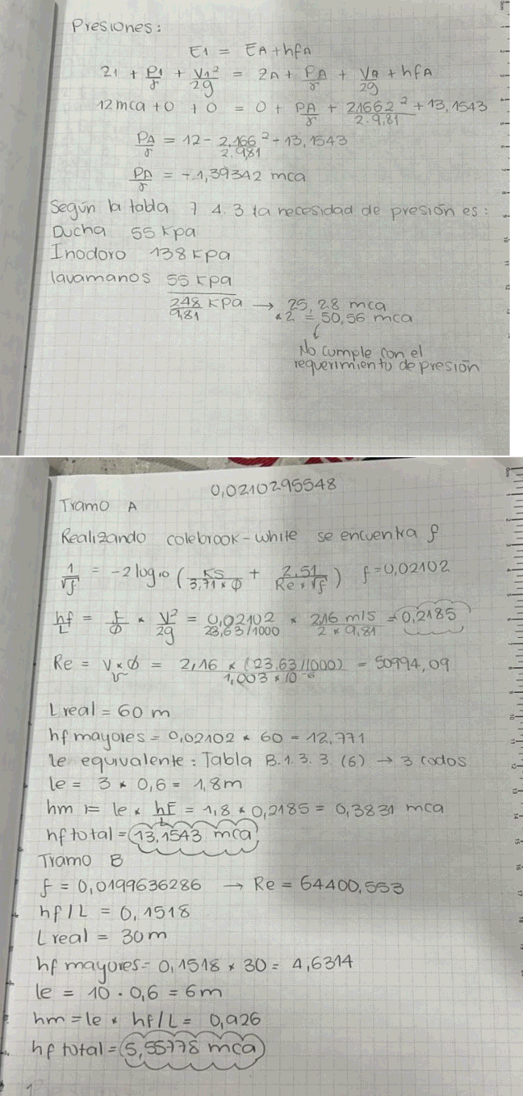 Presiones:
E1 = EA + hfA
z1 + P1/γ + V1²/2g = ZA + PA/γ + Va/2g + hfA
12mca + 0 + 0 = 0 + PA/γ + 2,1662²/2·9,81 + 13,1543
PA/γ = 12 - 2,166²/2·9,81 - 13,1543
PA/γ = -1,39342 mca
Según la tabla 7 4.3 la necesidad de presión es:
Ducha 55 Kpa
Inodoro 138 Kpa
lavamanos 55 Kpa
248 Kpa/9,81 → 25,28 mca
*2 = 50,56 mca
No cumple con el
requerimiento de presión
0,0210295548
Tramo A
Realizando colebrook-white se encuentra f
1/√f = -2 log10 (KS/3,71*Φ + 2,51/Re*√f) f=0,02102
hf/L = f/Φ * V²/2g = 0,02102/23,63/1000 * 2,16 m/s/2*9,81 = 0,2185
Re = V*Φ/ν = 2,16 * (23,63/1000)/1,003*10⁻⁶ = 50994,09
Lreal = 60 m
hf mayores = 0,02102 * 60 = 12,771
le equivalente: Tabla B.1.3.3.(6) → 3 codos
le = 3 * 0,6 = 1,8m
hm = le * hf/L = 1,8 * 0,2185 = 0,3831 mca
hf total = 13,1543 mca
Tramo B
f = 0,0199636286 → Re = 64400,553
hf/L = 0,1518
Lreal = 30m
hf mayores = 0,1518 * 30 = 4,6314
le = 10 · 0,6 = 6m
hm = le * hf/L = 0,926
hf total = 5,55778 mca